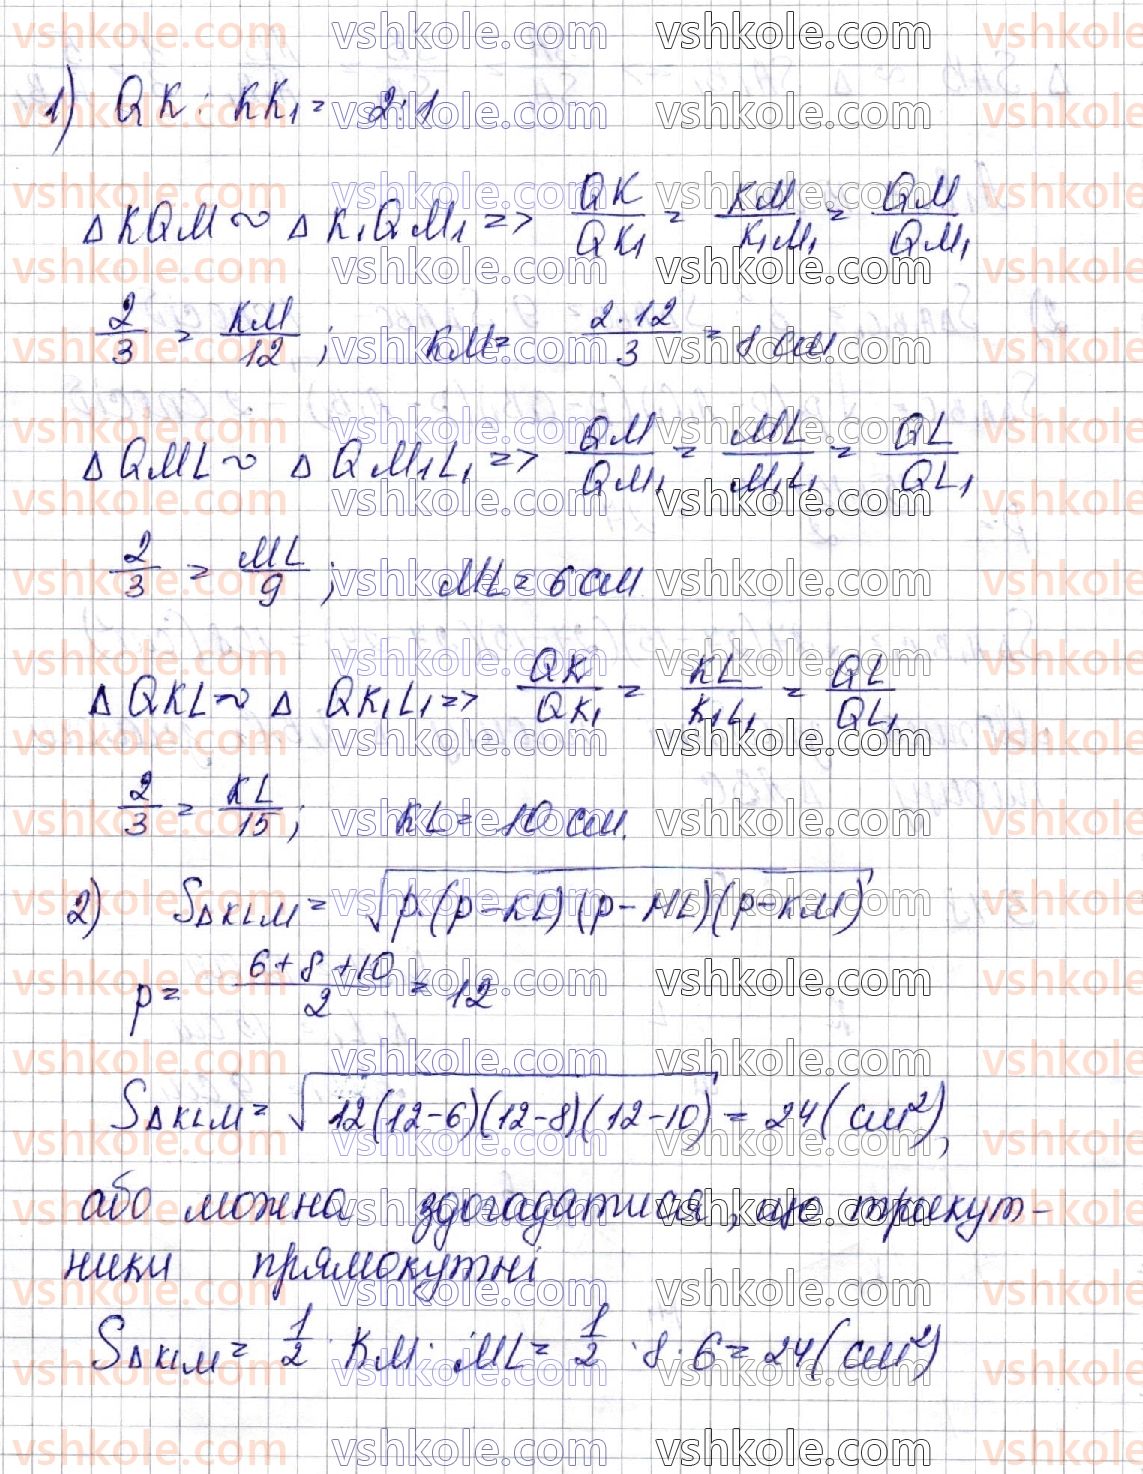 1) QK : KK₁ = 2:1
ΔKQM ~ ΔK₁QM₁ => QK/QK₁ = KM/K₁M₁ = QM/QM₁
2/3 = KM/12; KM = 2·12/3 = 8 см
ΔQML ~ ΔQM₁L₁ => QM/QM₁ = ML/M₁L₁ = QL/QL₁
2/3 = ML/9; ML = 6 см
ΔQKL ~ ΔQK₁L₁ => QK/QK₁ = KL/K₁L₁ = QL/QL₁
2/3 = KL/15; KL = 10 см.
2) SΔKLM = √p·(p-KL)(p-ML)(p-KM)
p = 6+8+10/2 = 12
SΔKLM = √12(12-6)(12-8)(12-10) = 24 (см²),
або можна здогадатися, що трикут-
ники прямокутні
SΔKLM = 1/2 · KM · ML = 1/2 · 8 · 6 = 24 (см²)
vshkole.com